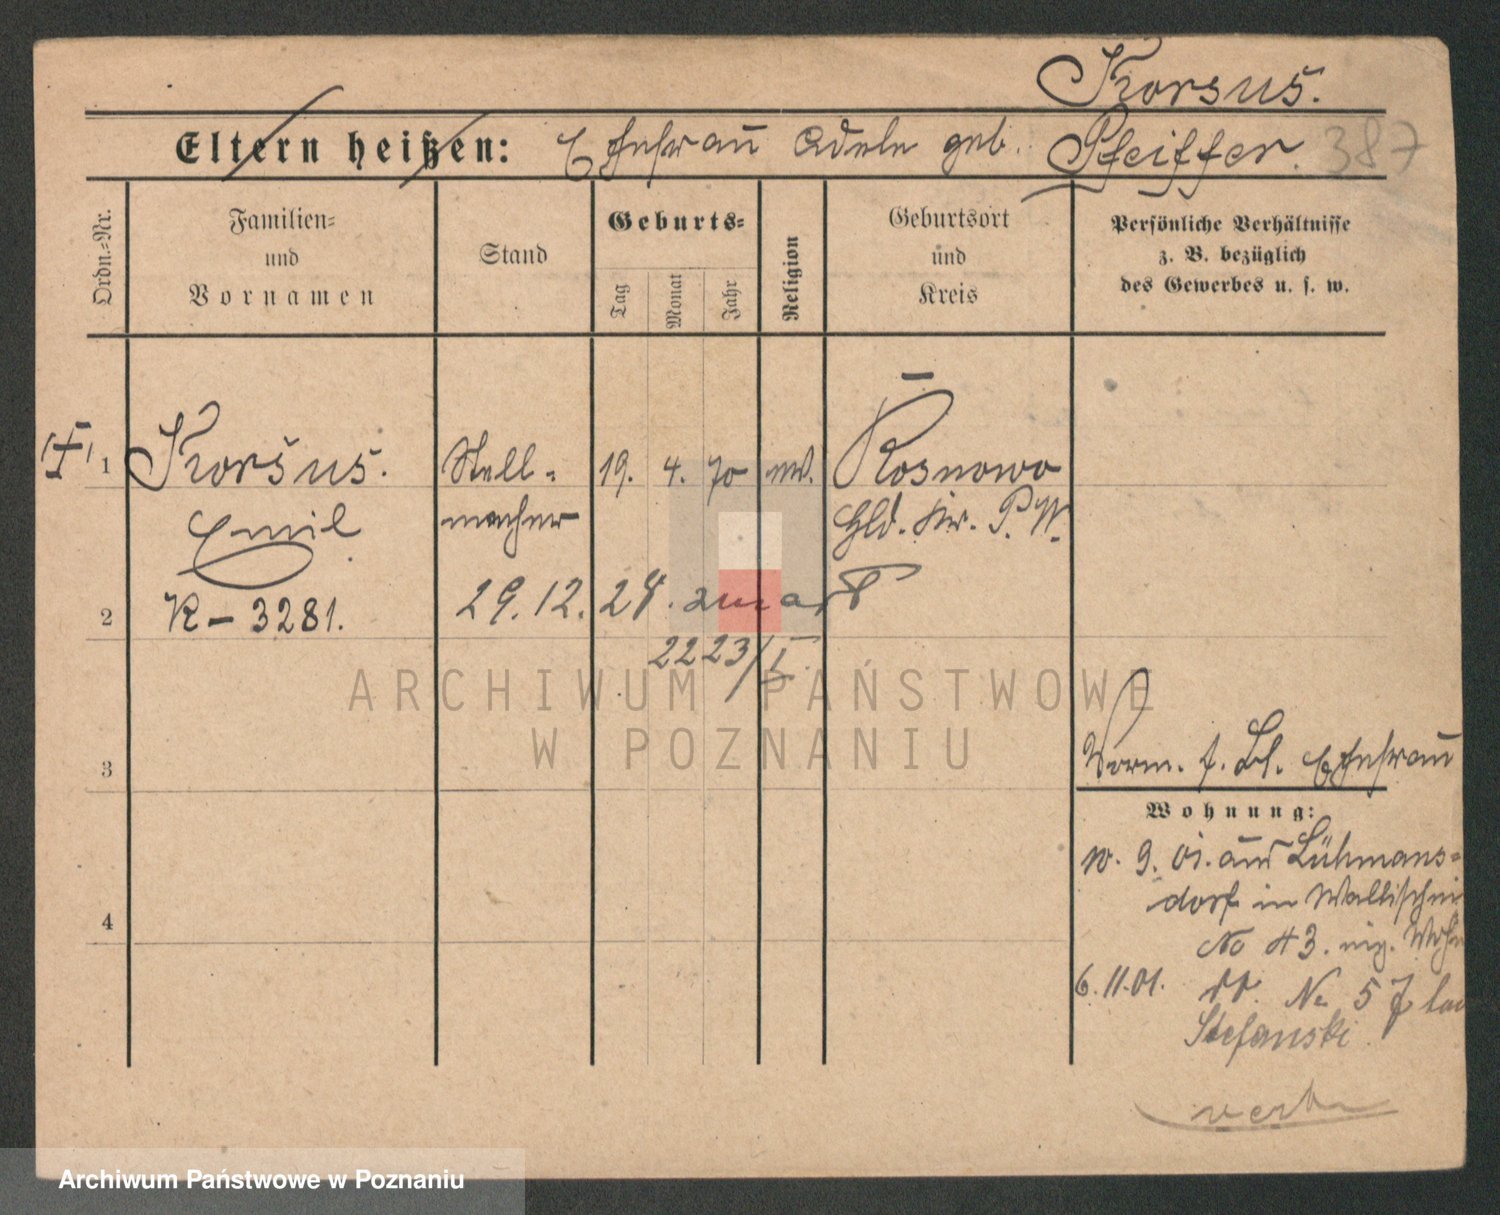 Korsuś.
Eltern heißen: Ehefrau Adele geb. Pfeiffer. 387
Ordn.=Nr.
Familien=
und
Vornamen
Stand
Geburts=
Tag
Monat
Jahr
Religion
Geburtsort
und
Kreis
Persönliche Verhältnisse
z. B. bezüglich
des Gewerbes u. s. w.
1 Korśuś. Stell= 19. 4. 70 ev. Rosnowo
Emil macher Gld. Kr. P. W.
2 K - 3281. 29. 12. 28. zmarł
22 23/I
ARCHIWUM PAŃSTWOWE
W POZNANIU
3
Vorm. f. Bl. Ehefrau
Wohnung:
w. 9. 01. aus Lühmans=
4
dorf in Wallischei
No 43. eig. Wohn
6. 11. 01. No 57 bei
Stefanski
verh
Archiwum Państwowe w Poznaniu